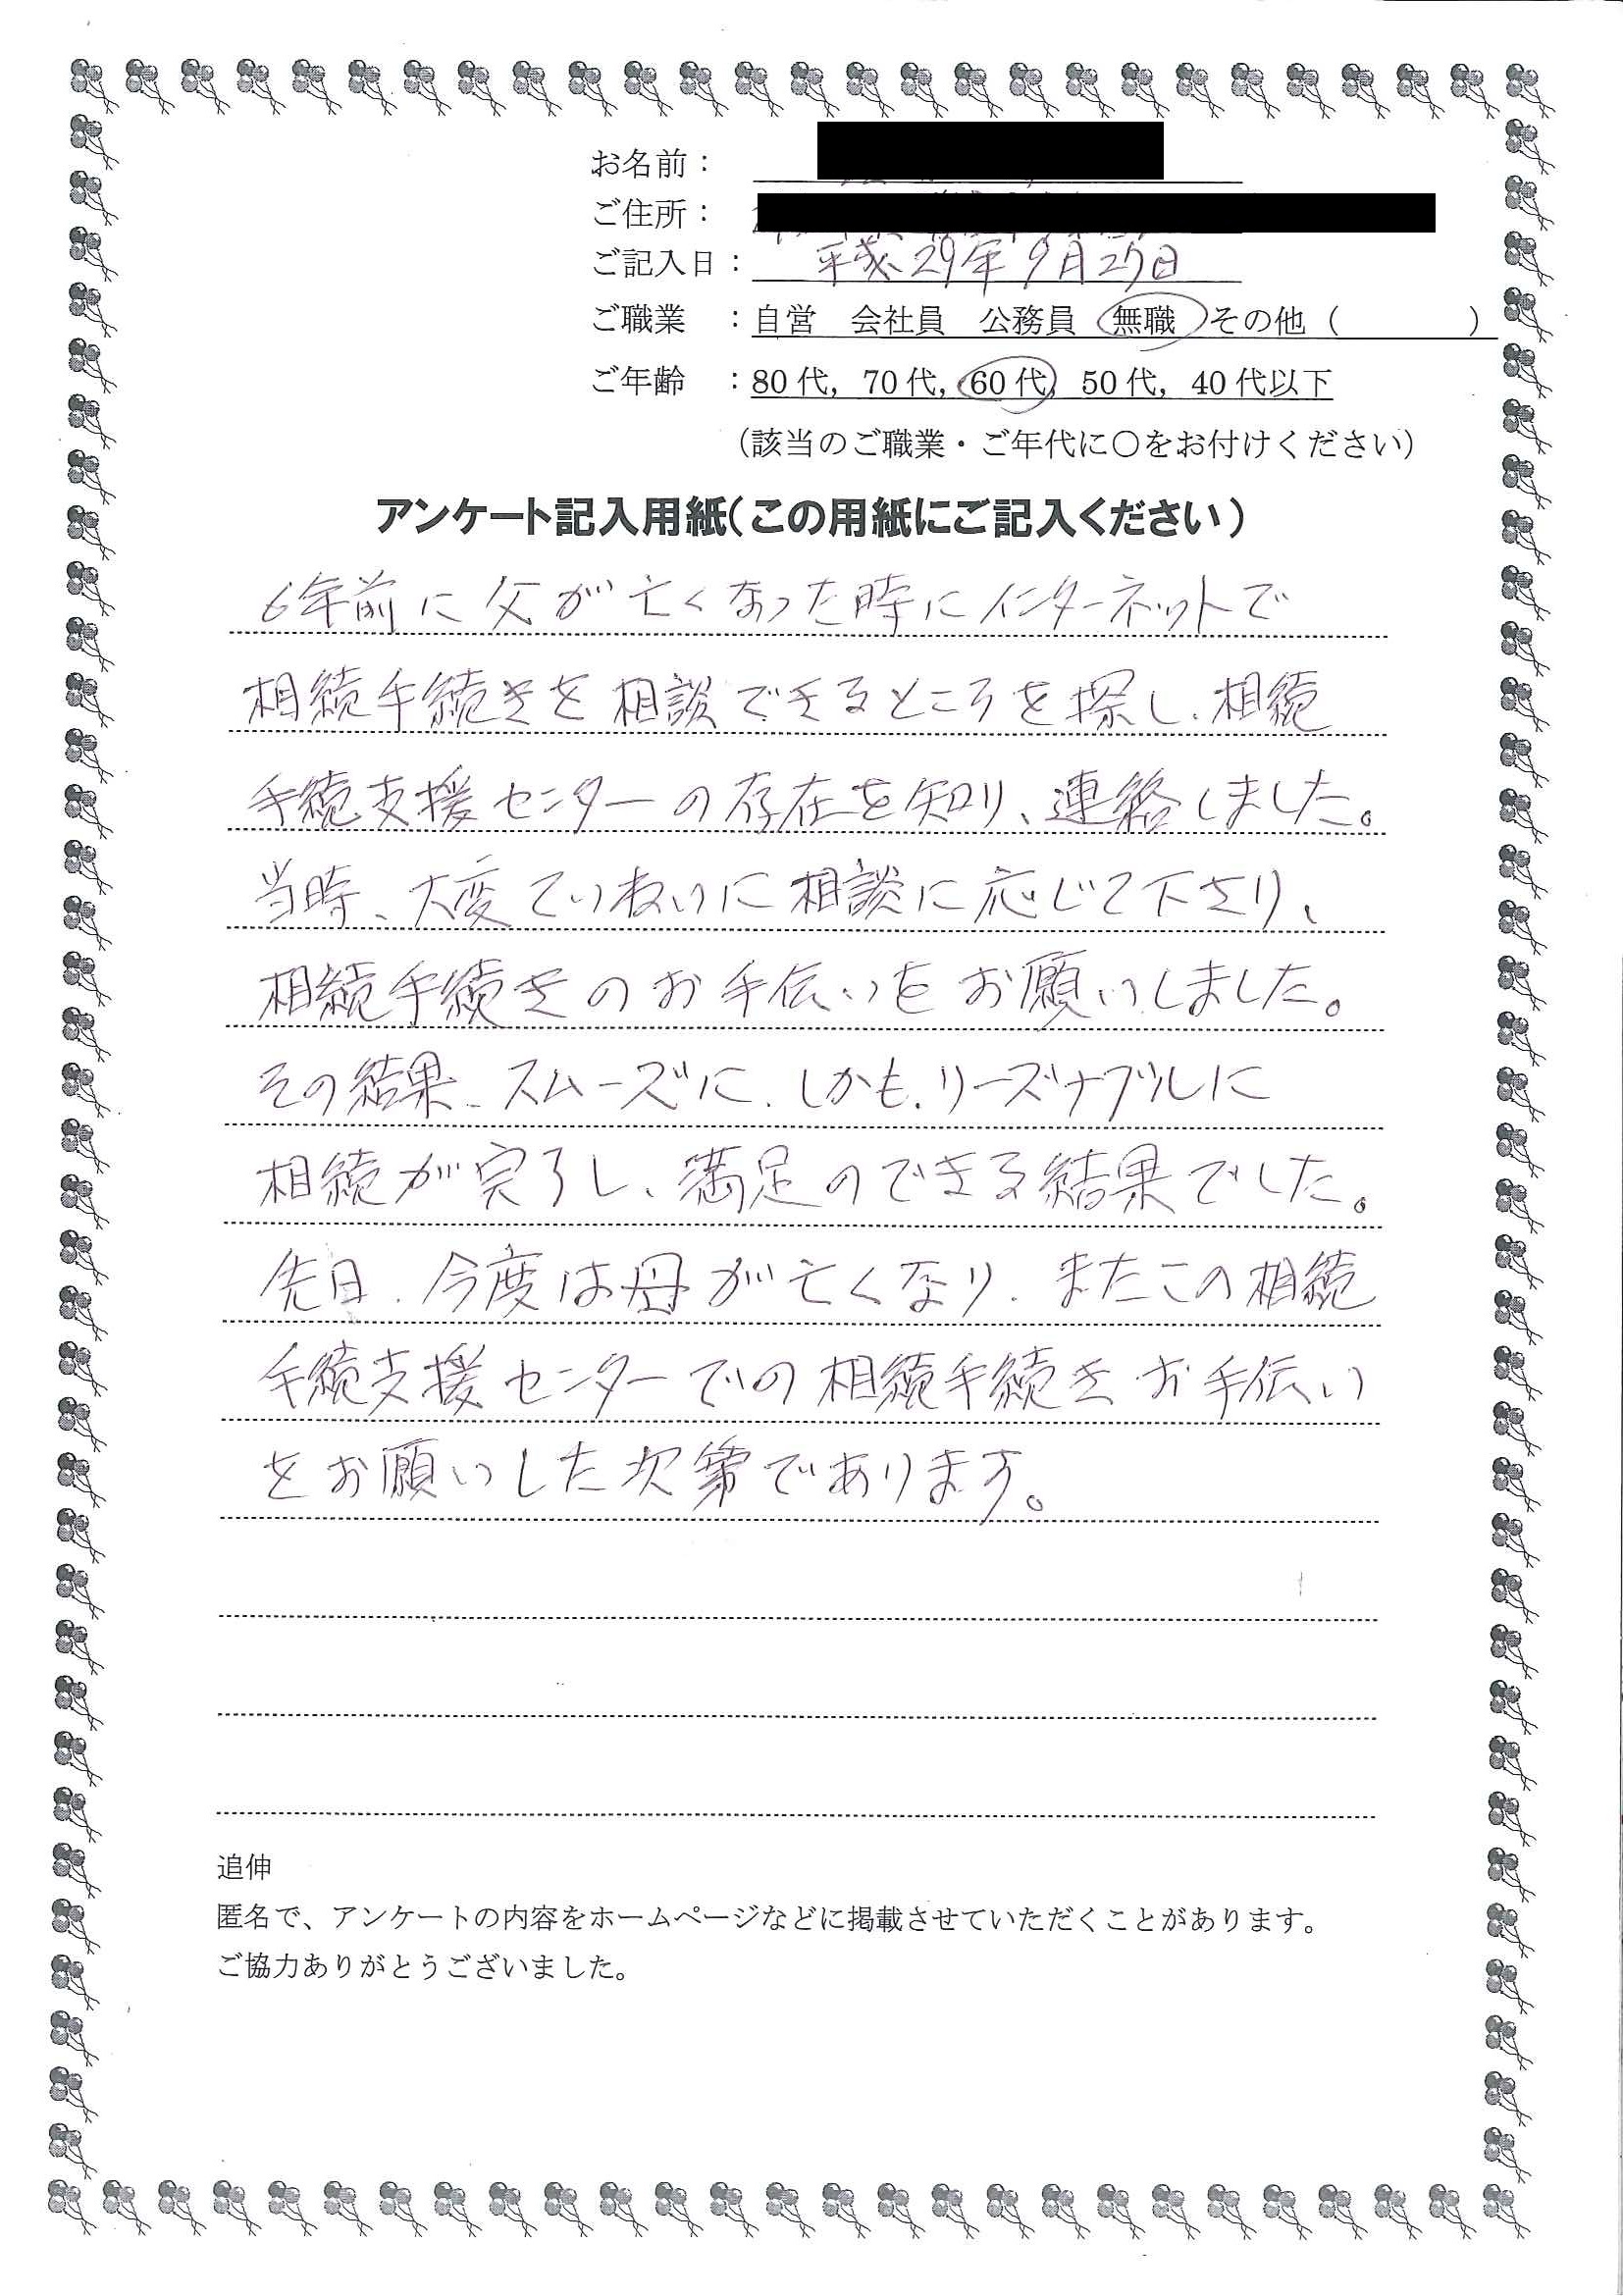 お名前：
ご住所：
ご記入日： 平成29年9月27日
ご職業 ：自営 会社員 公務員 無職 その他（ ）
ご年齢 ：80代，70代，60代，50代，40代以下
（該当のご職業・ご年代に○をお付けください）
アンケート記入用紙（この用紙にご記入ください）
6年前に父が亡くなった時にインターネットで
相続手続きを相談できるところを探し、相続
手続支援センターの存在を知り、連絡しました。
当時、大変ていねいに相談に応じて下さり、
相続手続きのお手伝いをお願いしました。
その結果、スムーズに、しかも、リーズナブルに
相続が完了し、満足のできる結果でした。
先日、今度は母が亡くなり、またこの相続
手続支援センターでの相続手続きお手伝い
をお願いした次第であります。
追伸
匿名で、アンケートの内容をホームページなどに掲載させていただくことがあります。
ご協力ありがとうございました。